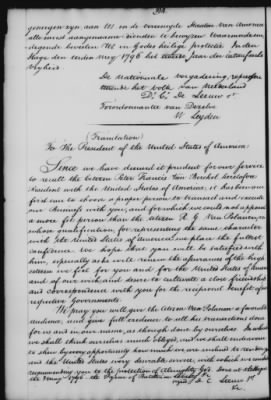 genegen zyn aan UE en de vereenigde Staaten van America
alle most aangenaame diensten te bewyzen Waarmede
bevelen UE in Godes heilige protectie. In den
Hage den tienden Mey 1796 het tweede Jaar der Bataafsche
Vryheid
De nationaale vergadering, represen
teerende het volk van Nederland
D. C. De Leeuw vt.
Ter ordonnantie van Dezelve
W. Leyden
(Translation)
To the President of the United States of America.
Since we have deemed it prudent for our service
to recall the citizen Peter Francis Van Berckel heretofore
Resident with the United States of America; it has been our
first care to choose a proper person to transact and execute
our Business with you, and for which we could not appoint
a more fit person than the citizen R. G. Van Polanen,
whose qualification for representing the same character
with the United States of America, we place the fullest
confidence. We hope that you will be satisfied with
him, especially as he will renew the assurances of the high
esteem we feel for you and for the United States of America
and of our wish and desire to cultivate a close friendship
and correspondence with you for the reciprocal benefit of our
respective Governments.
We pray you will give the Citizen Van Polanen a favorable
audience, and give full credence to all his transactions done
for us and in our name, as though done by ourselves. In which
we shall think ourselves much obliged, and we shall endeavour
to shew by every opportunity how much we are inclined to render you
and the United States every desirable service, with which we conclude
recommending you to the protection of Almighty God. Done at the Hague
10 May 1796 the 2 year of Batavian Liberty
signed D. C. Leeuw Pt.
&c.